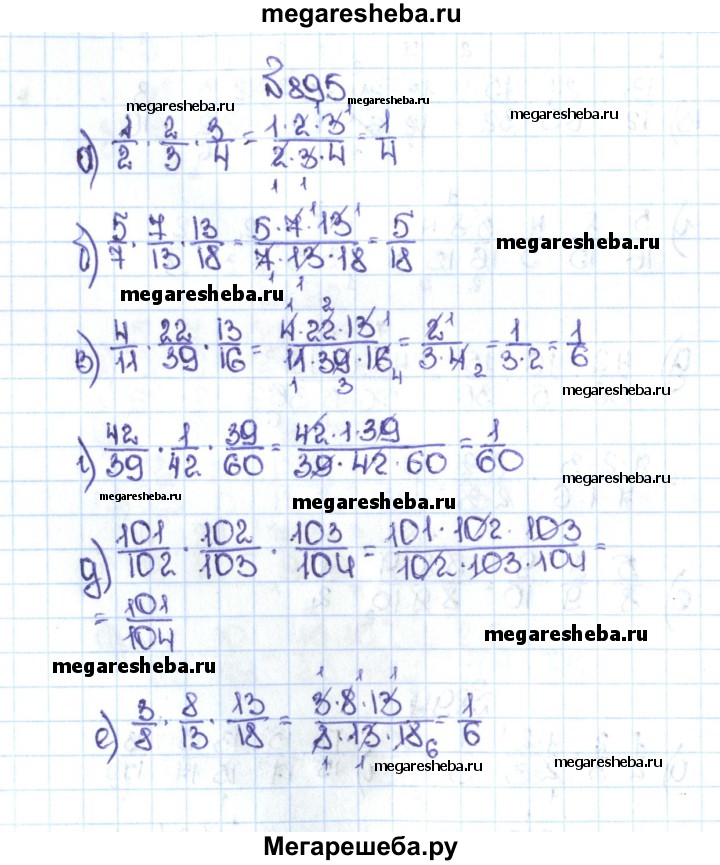 megaresheba.ru
№895
megaresheba.ru megaresheba.ru megaresheba.ru
а) 1/2 · 2/3 · 3/4 = 1·2·3/2·3·4 = 1/4
б) 5/7 · 7/13 · 13/18 = 5·7·13/7·13·18 = 5/18
megaresheba.ru
megaresheba.ru
в) 4/11 · 22/39 · 13/16 = 4·22·13/11·39·16 = 2/3·4 = 1/3·2 = 1/6
megaresheba.ru
г) 42/39 · 1/42 · 39/60 = 42·1·39/39·42·60 = 1/60
megaresheba.ru
megaresheba.ru megaresheba.ru
д) 101/102 · 102/103 · 103/104 = 101·102·103/102·103·104 =
= 101/104
megaresheba.ru
megaresheba.ru
е) 3/8 · 8/13 · 13/18 = 3·8·13/8·13·18 = 1/6
megaresheba.ru megaresheba.ru
Мегарешеба.ру